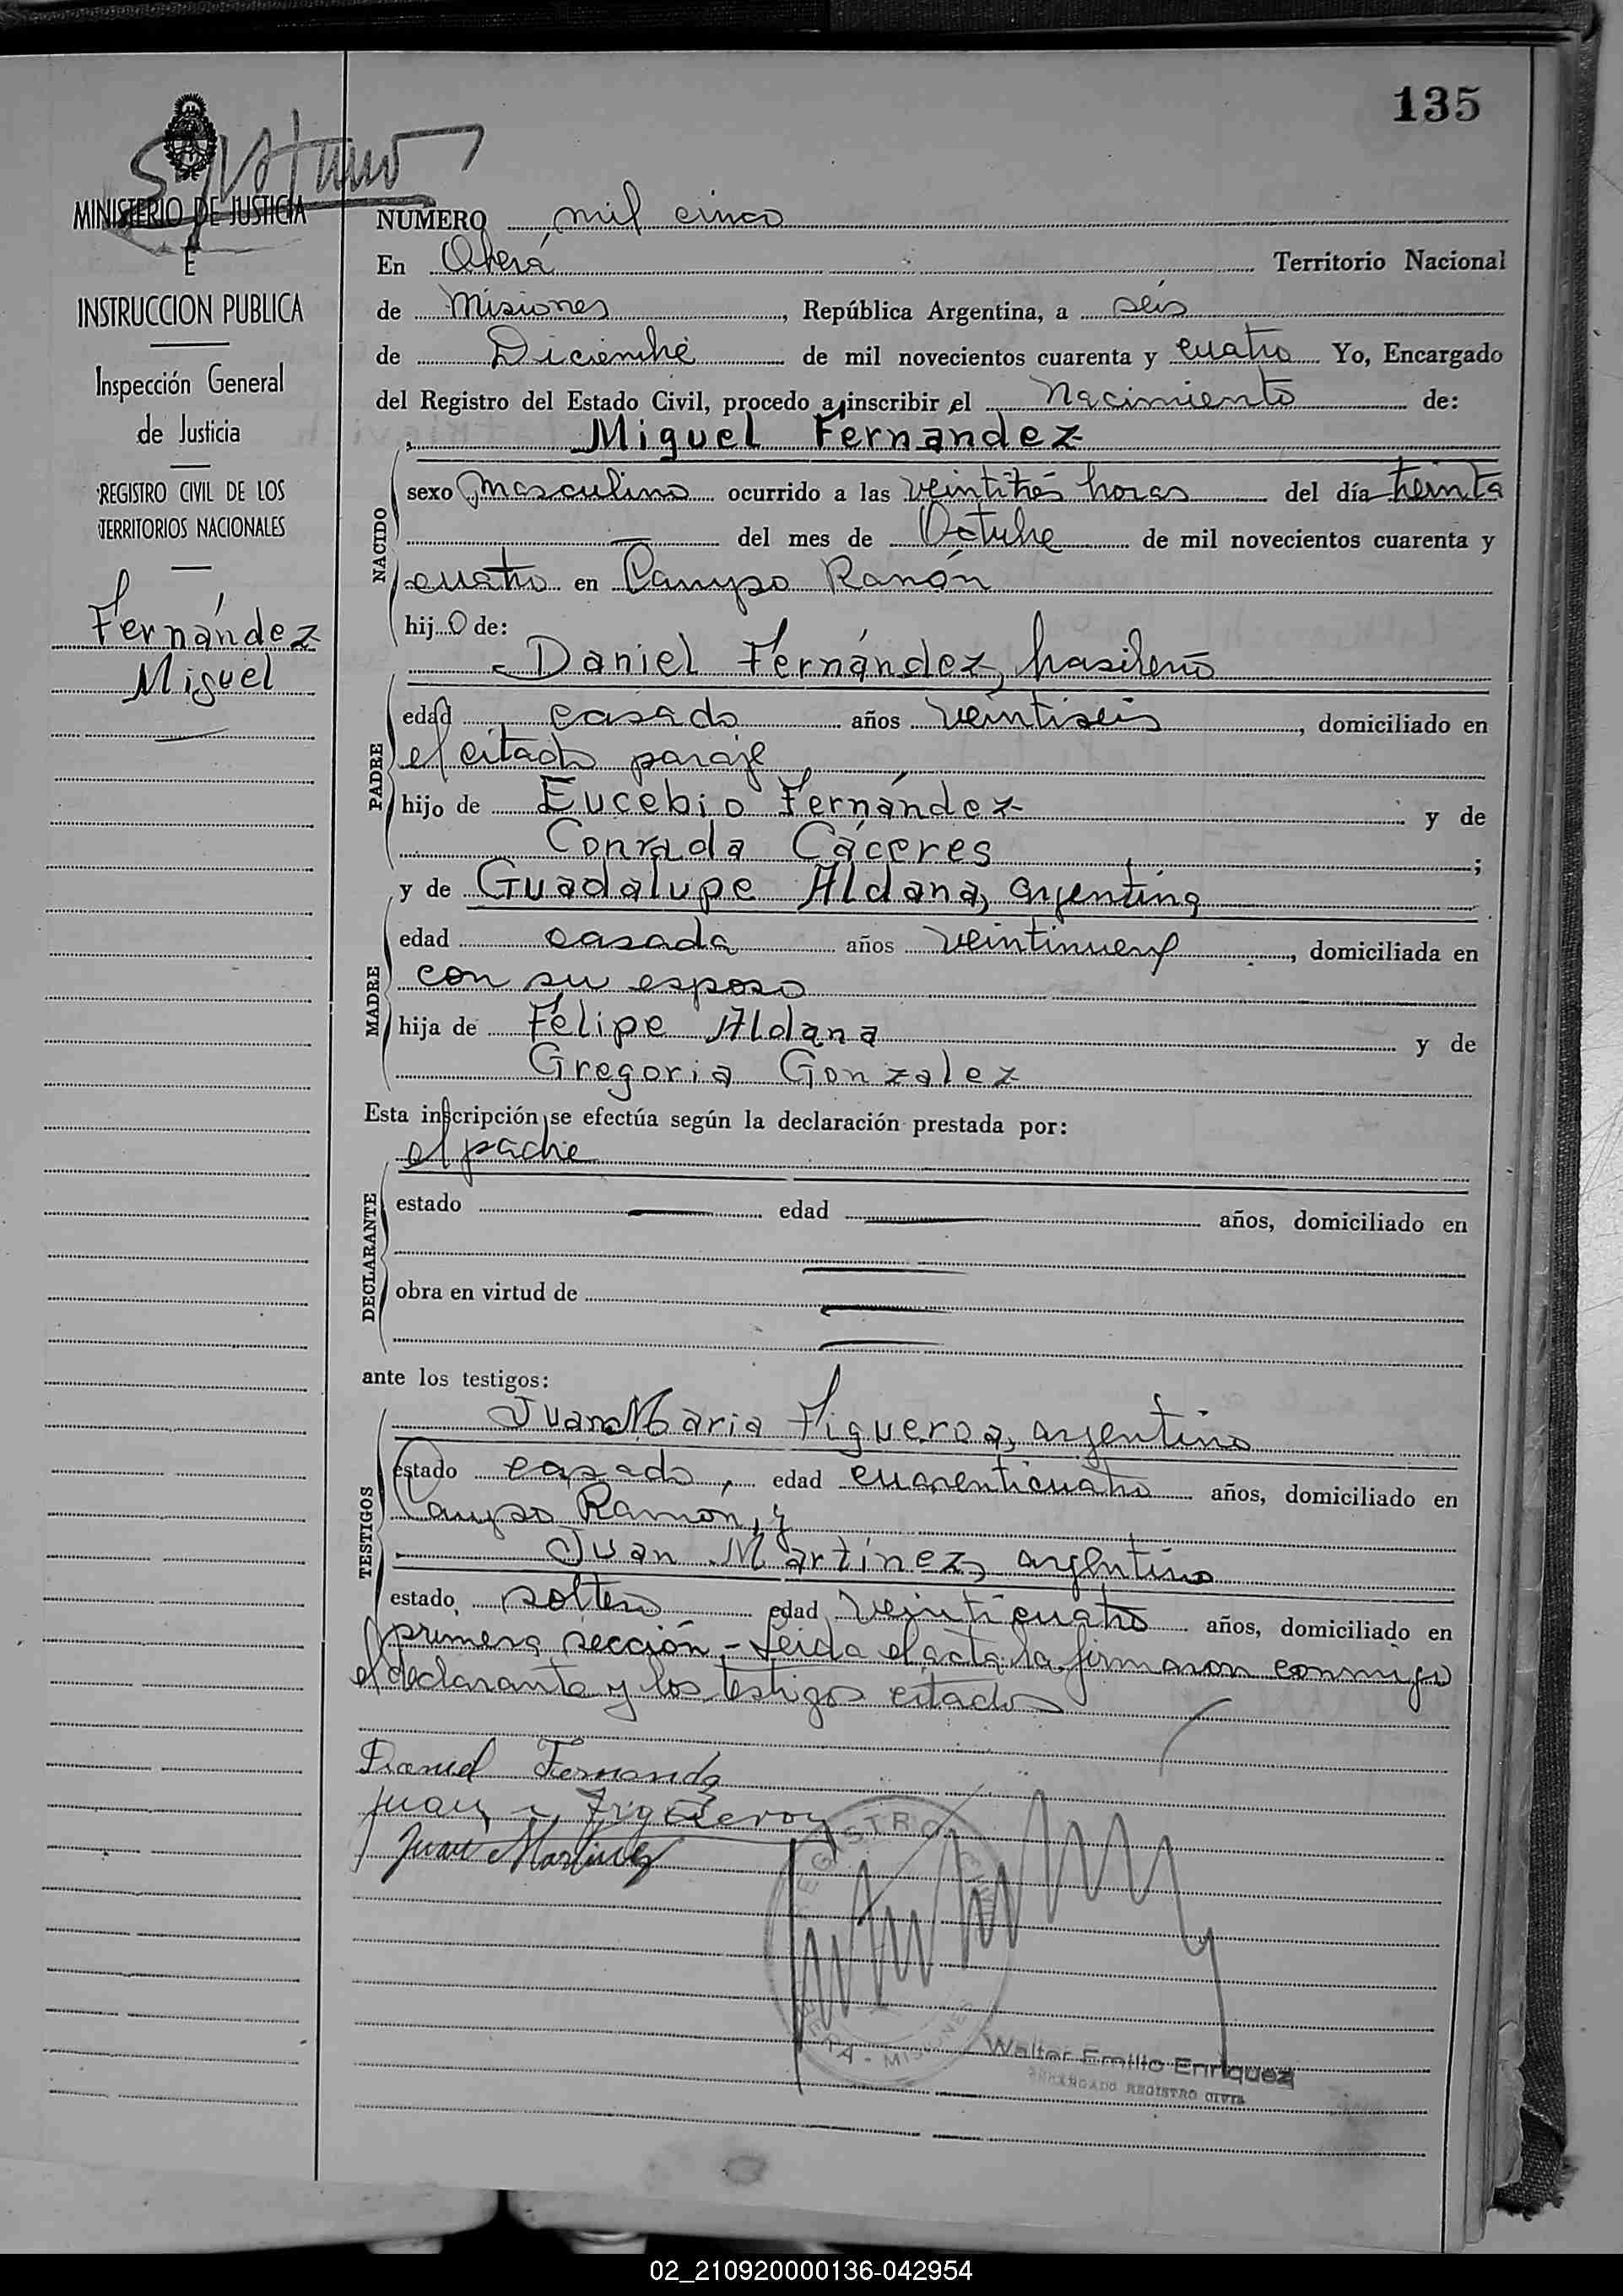 135
MINISTERIO DE JUSTICIA
E
INSTRUCCION PUBLICA
Inspección General
de Justicia
REGISTRO CIVIL DE LOS
TERRITORIOS NACIONALES
Fernández
Miguel
NUMERO mil cinco
En Oberá Territorio Nacional
de Misiones, República Argentina, a seis
de Diciembre de mil novecientos cuarenta y cuatro Yo, Encargado
del Registro del Estado Civil, procedo a inscribir el Nacimiento de:
Miguel Fernandez
NACIDO
sexo masculino ocurrido a las veintitrés horas del día treinta
del mes de Octubre de mil novecientos cuarenta y
cuatro en Campo Ramón
hijo de:
Daniel Fernández, brasileño
PADRE
edad casado años veintiseis, domiciliado en
el citado paraje
hijo de Eucebio Fernández y de
Conrada Cáceres;
y de Guadalupe Aldana, argentina
MADRE
edad casada años veintinueve, domiciliada en
con su esposo
hija de Felipe Aldana y de
Gregoria Gonzalez
Esta inscripción se efectúa según la declaración prestada por:
el padre
DECLARANTE
estado edad años, domiciliado en
obra en virtud de
ante los testigos:
TESTIGOS
Juan Maria Figueroa, argentino
estado casado, edad cuarenticuatro años, domiciliado en
Campo Ramon, y
Juan Martinez, argentino
estado soltero edad veinticuatro años, domiciliado en
primera sección.- Leida el acta la firmaron conmigo
el declarante y los testigos citados
Daniel Fernandz
Juan Figueroa
Juan Martinez
REGISTRO CIVIL
MISIONES
Walter Emilio Enriquez
ENCARGADO REGISTRO CIVIL
02_210920000136-042954